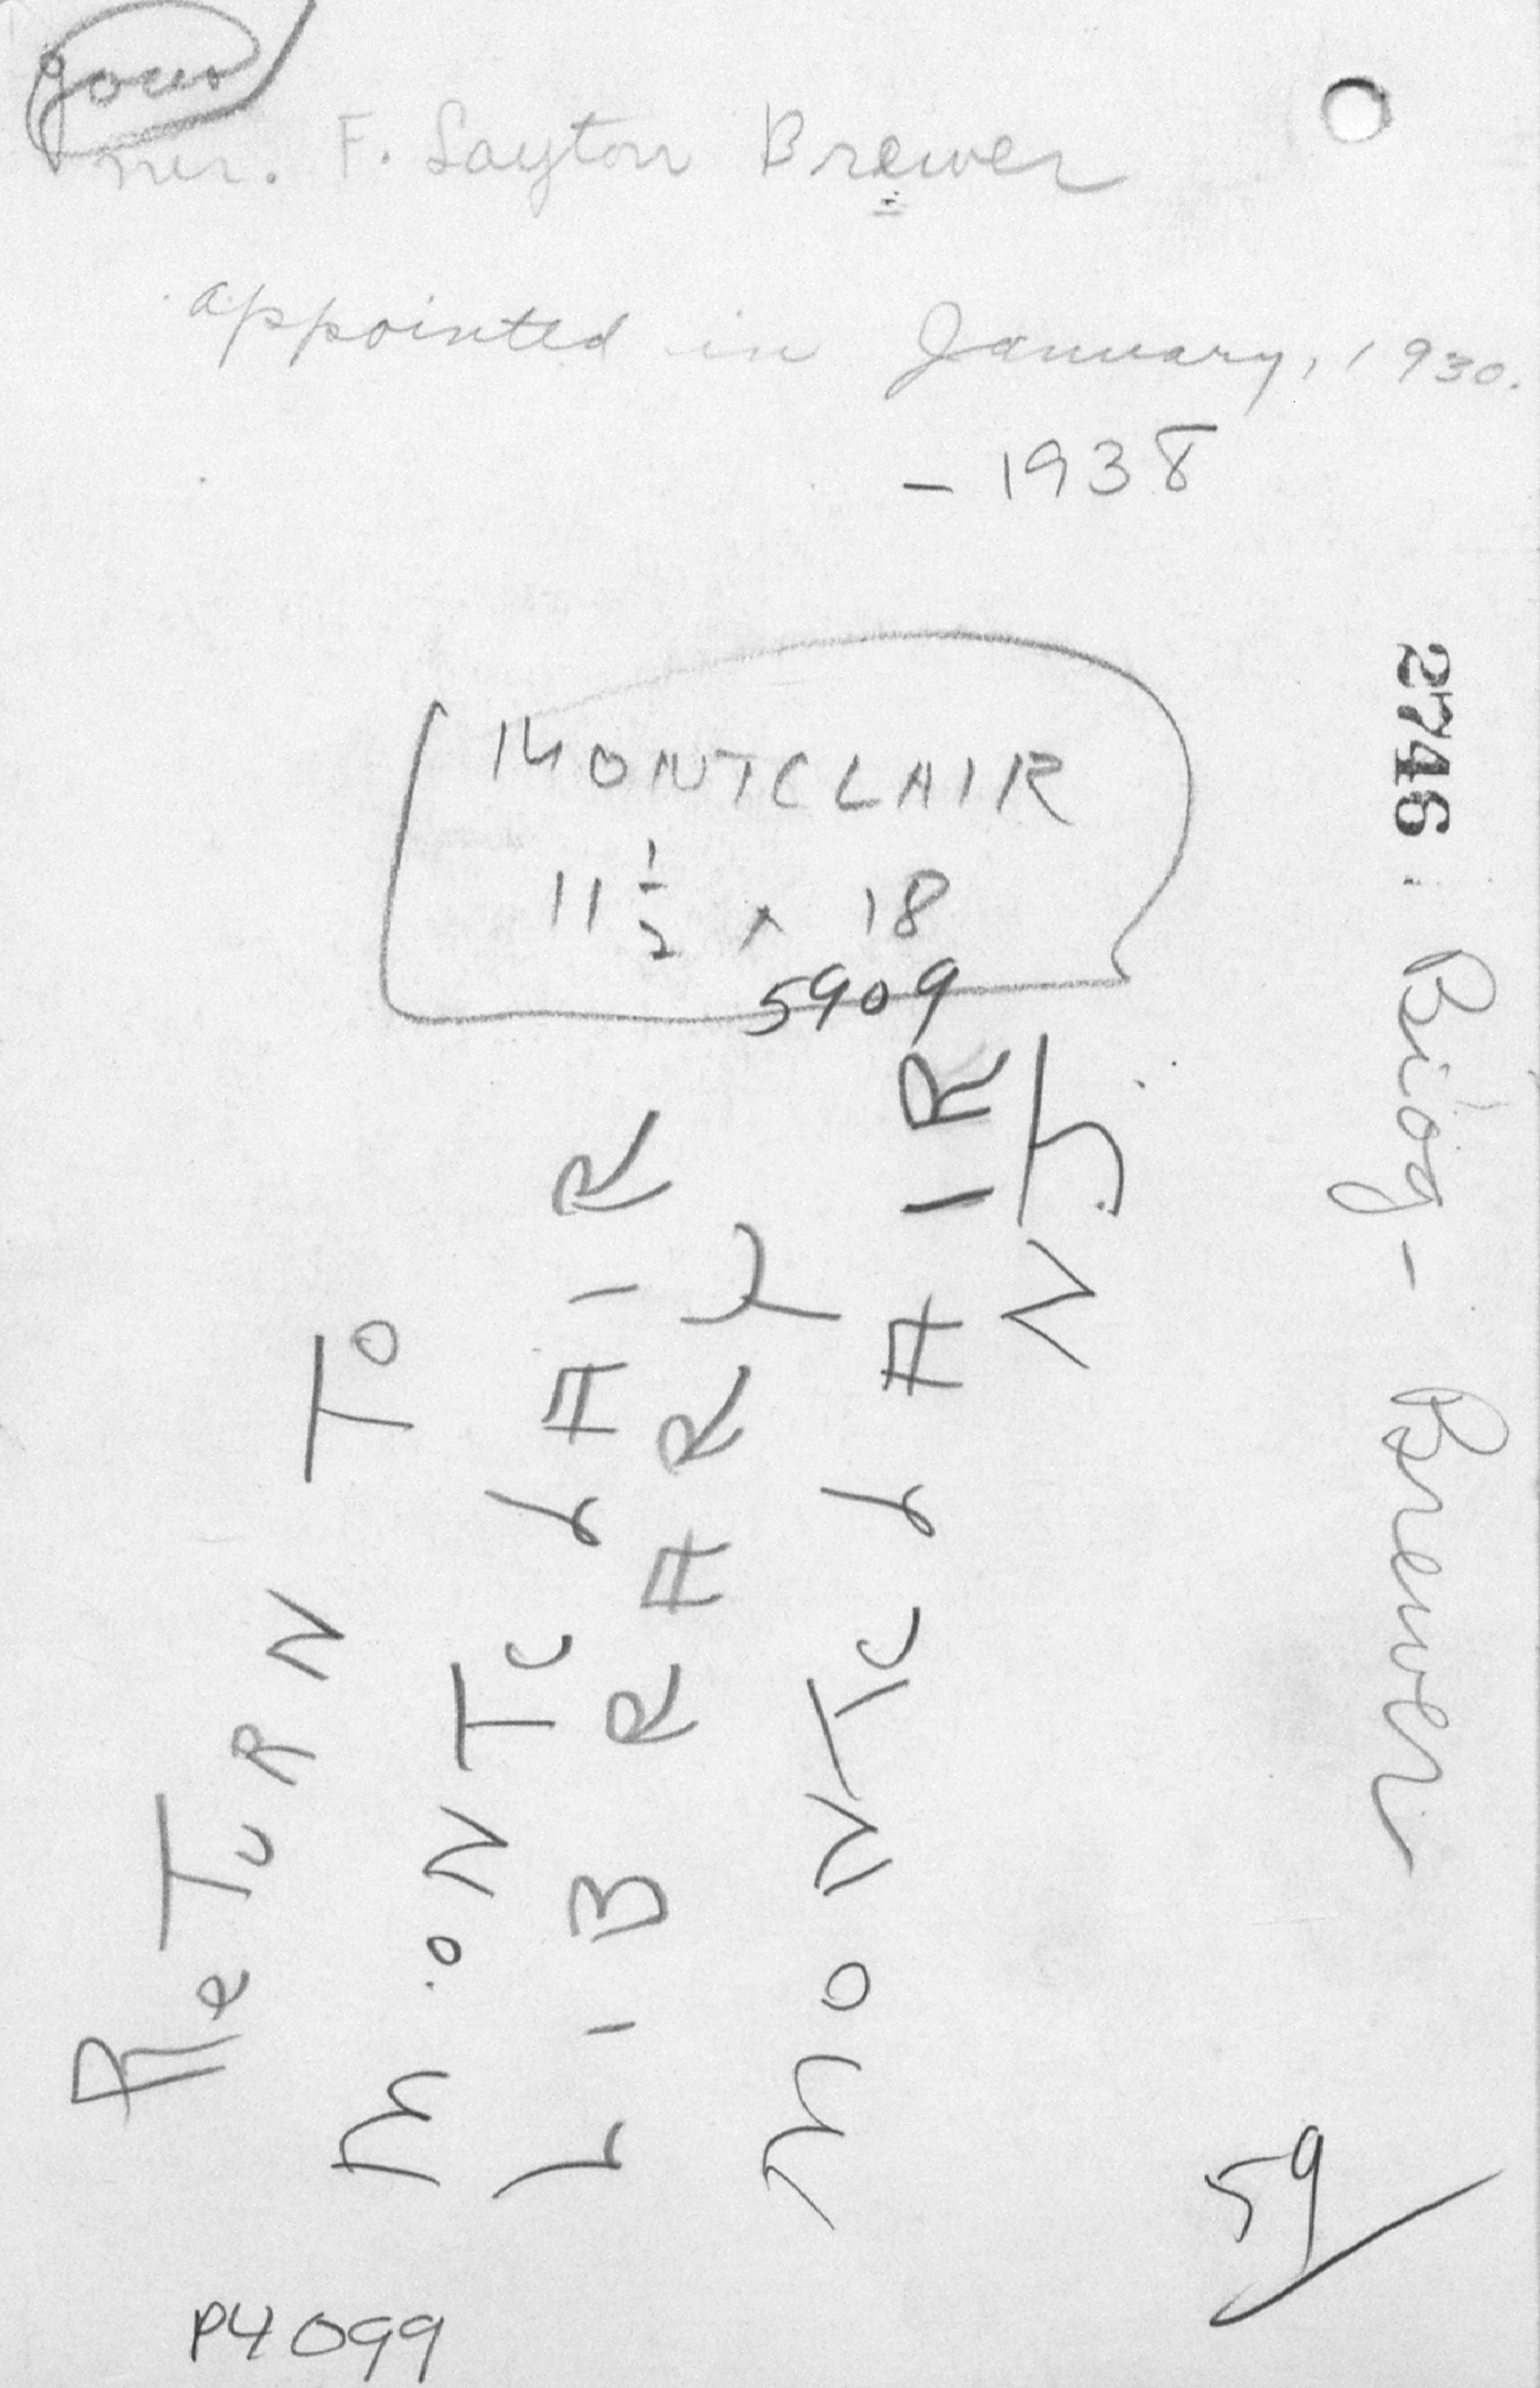 Mr. F. Layton Brewer
appointed in January, 1930.
- 1938
MONTCLAIR
11 1/2 x 18
5909
ReTURN To
MoNTCLAIR
LIBRARY
MoNTCLAIR
N.J.
2746
Biog- Brewer
59
P4099